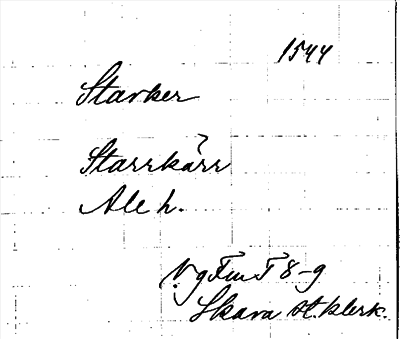 1544
Starker
Starrkärr
Ale h.
Vg Fm F 8-9
Skara st. klerk.